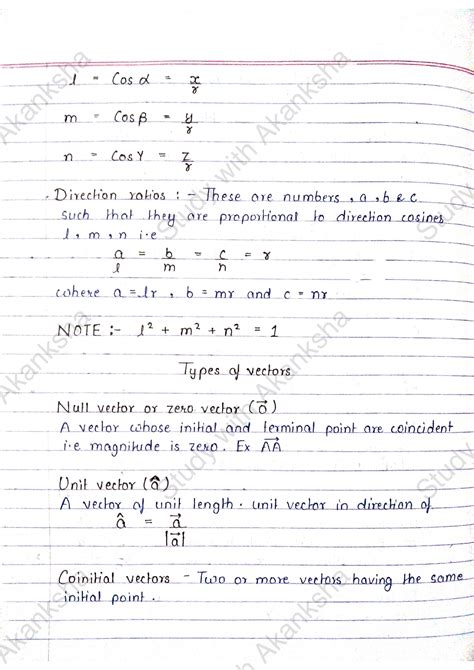 l = Cos α = x/r
m = Cos β = y/r
n = Cos γ = z/r
Direction ratios :- These are numbers, a, b & c
such that they are proportional to direction cosines
l, m, n i.e
a/l = b/m = c/n = r
where a = lr, b = mr and c = nr
NOTE :- l² + m² + n² = 1
Types of vectors
Null vector or zero vector (o⃗)
A vector whose initial and terminal point are coincident
i.e magnitude is zero. Ex A⃗A⃗
Unit vector (â)
A vector of unit length. unit vector in direction of
â = a⃗/|a⃗|
Coinitial vectors - Two or more vectors having the same
initial point.
Study with Akanksha
Study with Akanksha
Study with Akanksha